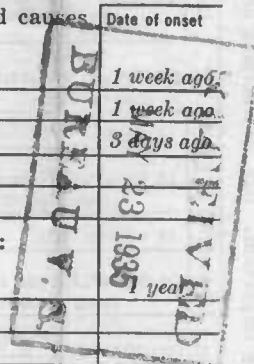 d causes
Date of onset
1 week ago
1 week ago
3 days ago
1 year
RECEIVED
MAY 23 1935
BUREAU V. S.